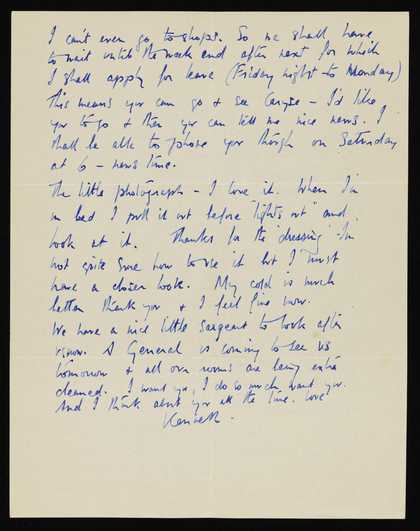 I can't even go to shops. So we shall have
to wait until the week end after next for which
I shall apply for leave (Friday night to Monday)
This means you can go & see Caryse – I'd like
you to go & then you can tell me nice news. I
shall be able to 'phone you though on Saturday
at 6 – news time.
The little photograph – I love it. When I'm
in bed I pull it out before "lights out" and
look at it. Thanks for the 'dressing' I'm
not quite sure how to use it but I must
have a closer look. My cold is much
better thank you & I feel fine now.
We have a nice little sargeant to look after
us now. A General is coming to see us
tomorrow & all our rooms are being extra
cleaned. I want you, I do so much want you.
And I think about you all the time. Love
Kenneth.